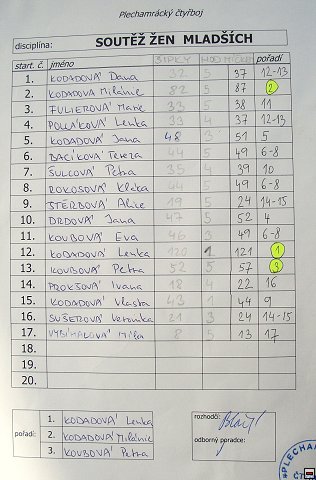 Plechamrácký čtyřboj
disciplína: SOUTĚŽ ŽEN MLADŠÍCH
start. č. jméno ŠIPKY HOD MÍČKY pořadí
1. KODADOVÁ Dana 32 5 37 12-13
2. KODADOVÁ Milánie 82 5 87 2
3. FULIEROVÁ Marie 33 5 38 11
4. POLLÁKOVÁ Lenka 33 4 37 12-13
5. KODADOVÁ Jana 48 3 51 5
6. BACÍKOVÁ Tereza 44 5 49 6-8
7. ŠULCOVÁ Petra 35 4 39 10
8. ROKOSOVÁ 44 5 49 6-8
9. ŠTĚRBOVÁ Alice 19 5 24 14-15
10. DRDOVÁ Jana 47 5 52 4
11. KOUBOVÁ Eva 46 3 49 6-8
12. KODADOVÁ Lenka 120 1 121 1
13. KOUBOVÁ Petra 52 5 57 3
14. PROKŠOVÁ Ivana 18 4 22 16
15. KODADOVÁ Vlasta 43 1 44 9
16. SUŠEROVÁ Veronika 21 3 24 14-15
17. VYBÍHALOVÁ Míla 8 5 13 17
18.
19.
20.
pořadí:
1. KODADOVÁ Lenka
2. KODADOVÁ Milánie
3. KOUBOVÁ Petra
rozhodčí:
odborný poradce:
PLECHAM